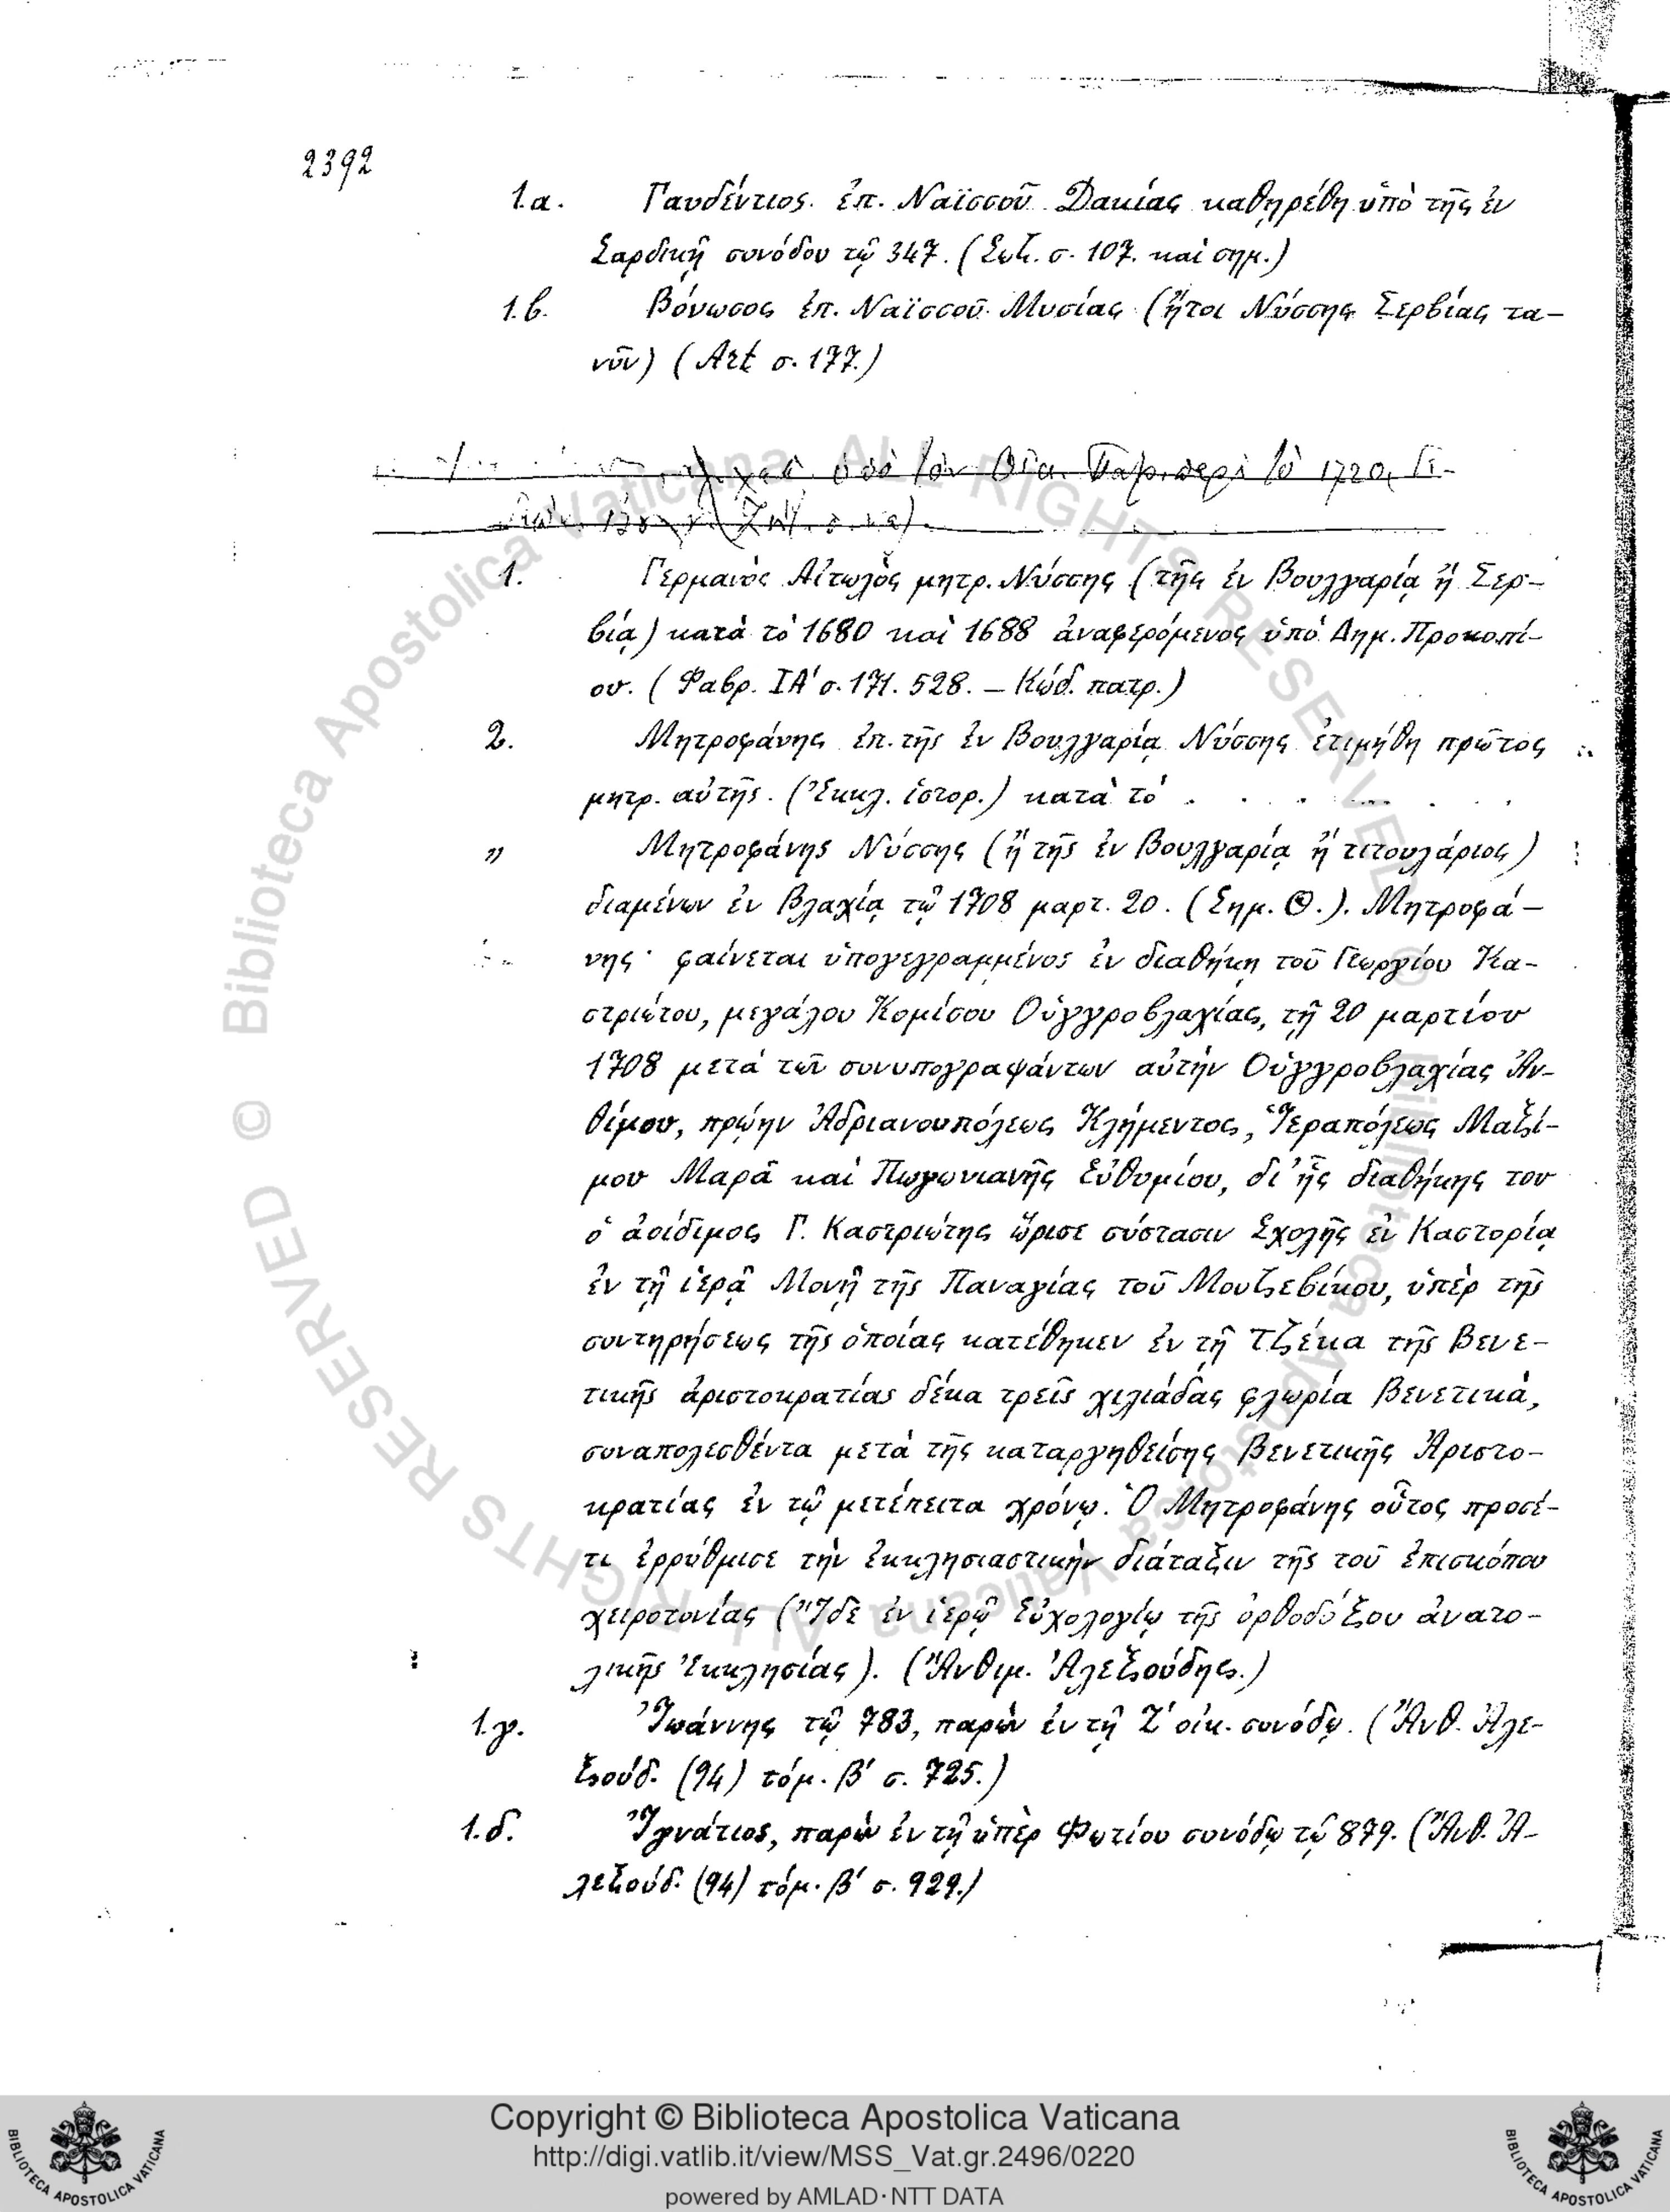 2392
1.α. Γαυδέντιος ἐπ. Ναϊσσοῦ Δακίας καθηρέθη ὑπὸ τῆς ἐν
Σαρδικῇ συνόδου τῷ 347. (Σωζ. σ. 107. καὶ σημ.)
1.β. Βόνωσος ἐπ. Ναϊσσοῦ Μυσίας (ἤτοι Νύσσης Σερβίας τα-
νῦν) (Art σ. 177.)
ὑπὸ τὸν περὶ τὸ 1720,
1. Γερμανὸς Αἰτωλὸς μητρ. Νύσσης (τῆς ἐν Βουλγαρίᾳ ἢ Σερ-
βίᾳ) κατὰ τὸ 1680 καὶ 1688 ἀναφερόμενος ὑπὸ Δημ. Προκοπί-
ου. (Φαβρ. ΙΑ' σ. 171. 528. – Κώδ. πατρ.)
2. Μητροφάνης ἐπ. τῆς ἐν Βουλγαρίᾳ Νύσσης ἐτιμήθη πρῶτος
μητρ. αὐτῆς. (Ἐκκλ. ἱστορ.) κατὰ τὸ . . . . . . .
" Μητροφάνης Νύσσης (ἢ τῆς ἐν Βουλγαρίᾳ ἢ τιτουλάριος)
διαμένων ἐν Βλαχίᾳ τῷ 1708 μαρτ. 20. (Σημ. Θ.). Μητροφά-
νης· φαίνεται ὑπογεγραμμένος ἐν διαθήκῃ τοῦ Γεωργίου Κα-
στριώτου, μεγάλου Κομίσου Οὐγγροβλαχίας, τῇ 20 μαρτίου
1708 μετὰ τῶν συνυπογραψάντων αὐτὴν Οὐγγροβλαχίας Ἀν-
θίμου, πρώην Ἀδριανουπόλεως Κλήμεντος, Ἱεραπόλεως Μαξί-
μου Μαρᾶ καὶ Πωγωνιανῆς Εὐθυμίου, δι' ἧς διαθήκης του
ὁ ἀοίδιμος Γ. Καστριώτης ὥρισε σύστασιν Σχολῆς ἐν Καστορίᾳ
ἐν τῇ ἱερᾷ Μονῇ τῆς Παναγίας τοῦ Μουζεβίκου, ὑπὲρ τῆς
συντηρήσεως τῆς ὁποίας κατέθηκεν ἐν τῇ Τζέκα τῆς Βενε-
τικῆς ἀριστοκρατίας δέκα τρεῖς χιλιάδας φλωρία Βενετικά,
συναπολεσθέντα μετὰ τῆς καταργηθείσης Βενετικῆς Ἀριστο-
κρατίας ἐν τῷ μετέπειτα χρόνῳ. Ὁ Μητροφάνης οὗτος προσέ-
τι ἐρρύθμισε τὴν ἐκκλησιαστικὴν διάταξιν τῆς τοῦ ἐπισκόπου
χειροτονίας (Ἴδε ἐν ἱερῷ Εὐχολογίῳ τῆς ὀρθοδόξου ἀνατο-
λικῆς Ἐκκλησίας). (Ἄνθιμ. Ἀλεξούδης.)
1.γ. Ἰωάννης τῷ 783, παρὼν ἐν τῇ Ζ' οἰκ. συνόδῳ. (Ἄνθ. Ἀλε-
ξούδ. (94) τόμ. β' σ. 725.)
1.δ. Ἰγνάτιος, παρὼν ἐν τῇ ὑπὲρ Φωτίου συνόδῳ τῷ 879. (Ἄνθ. Ἀ-
λεξούδ. (94) τόμ. β' σ. 929.)
© Biblioteca Apostolica Vaticana ALL RIGHTS RESERVED
© Biblioteca Apostolica Vaticana ALL RIGHTS RESERVED
Copyright © Biblioteca Apostolica Vaticana
http://digi.vatlib.it/view/MSS_Vat.gr.2496/0220
powered by AMLAD·NTT DATA
BIBLIOTECA APOSTOLICA VATICANA
BIBLIOTECA APOSTOLICA VATICANA